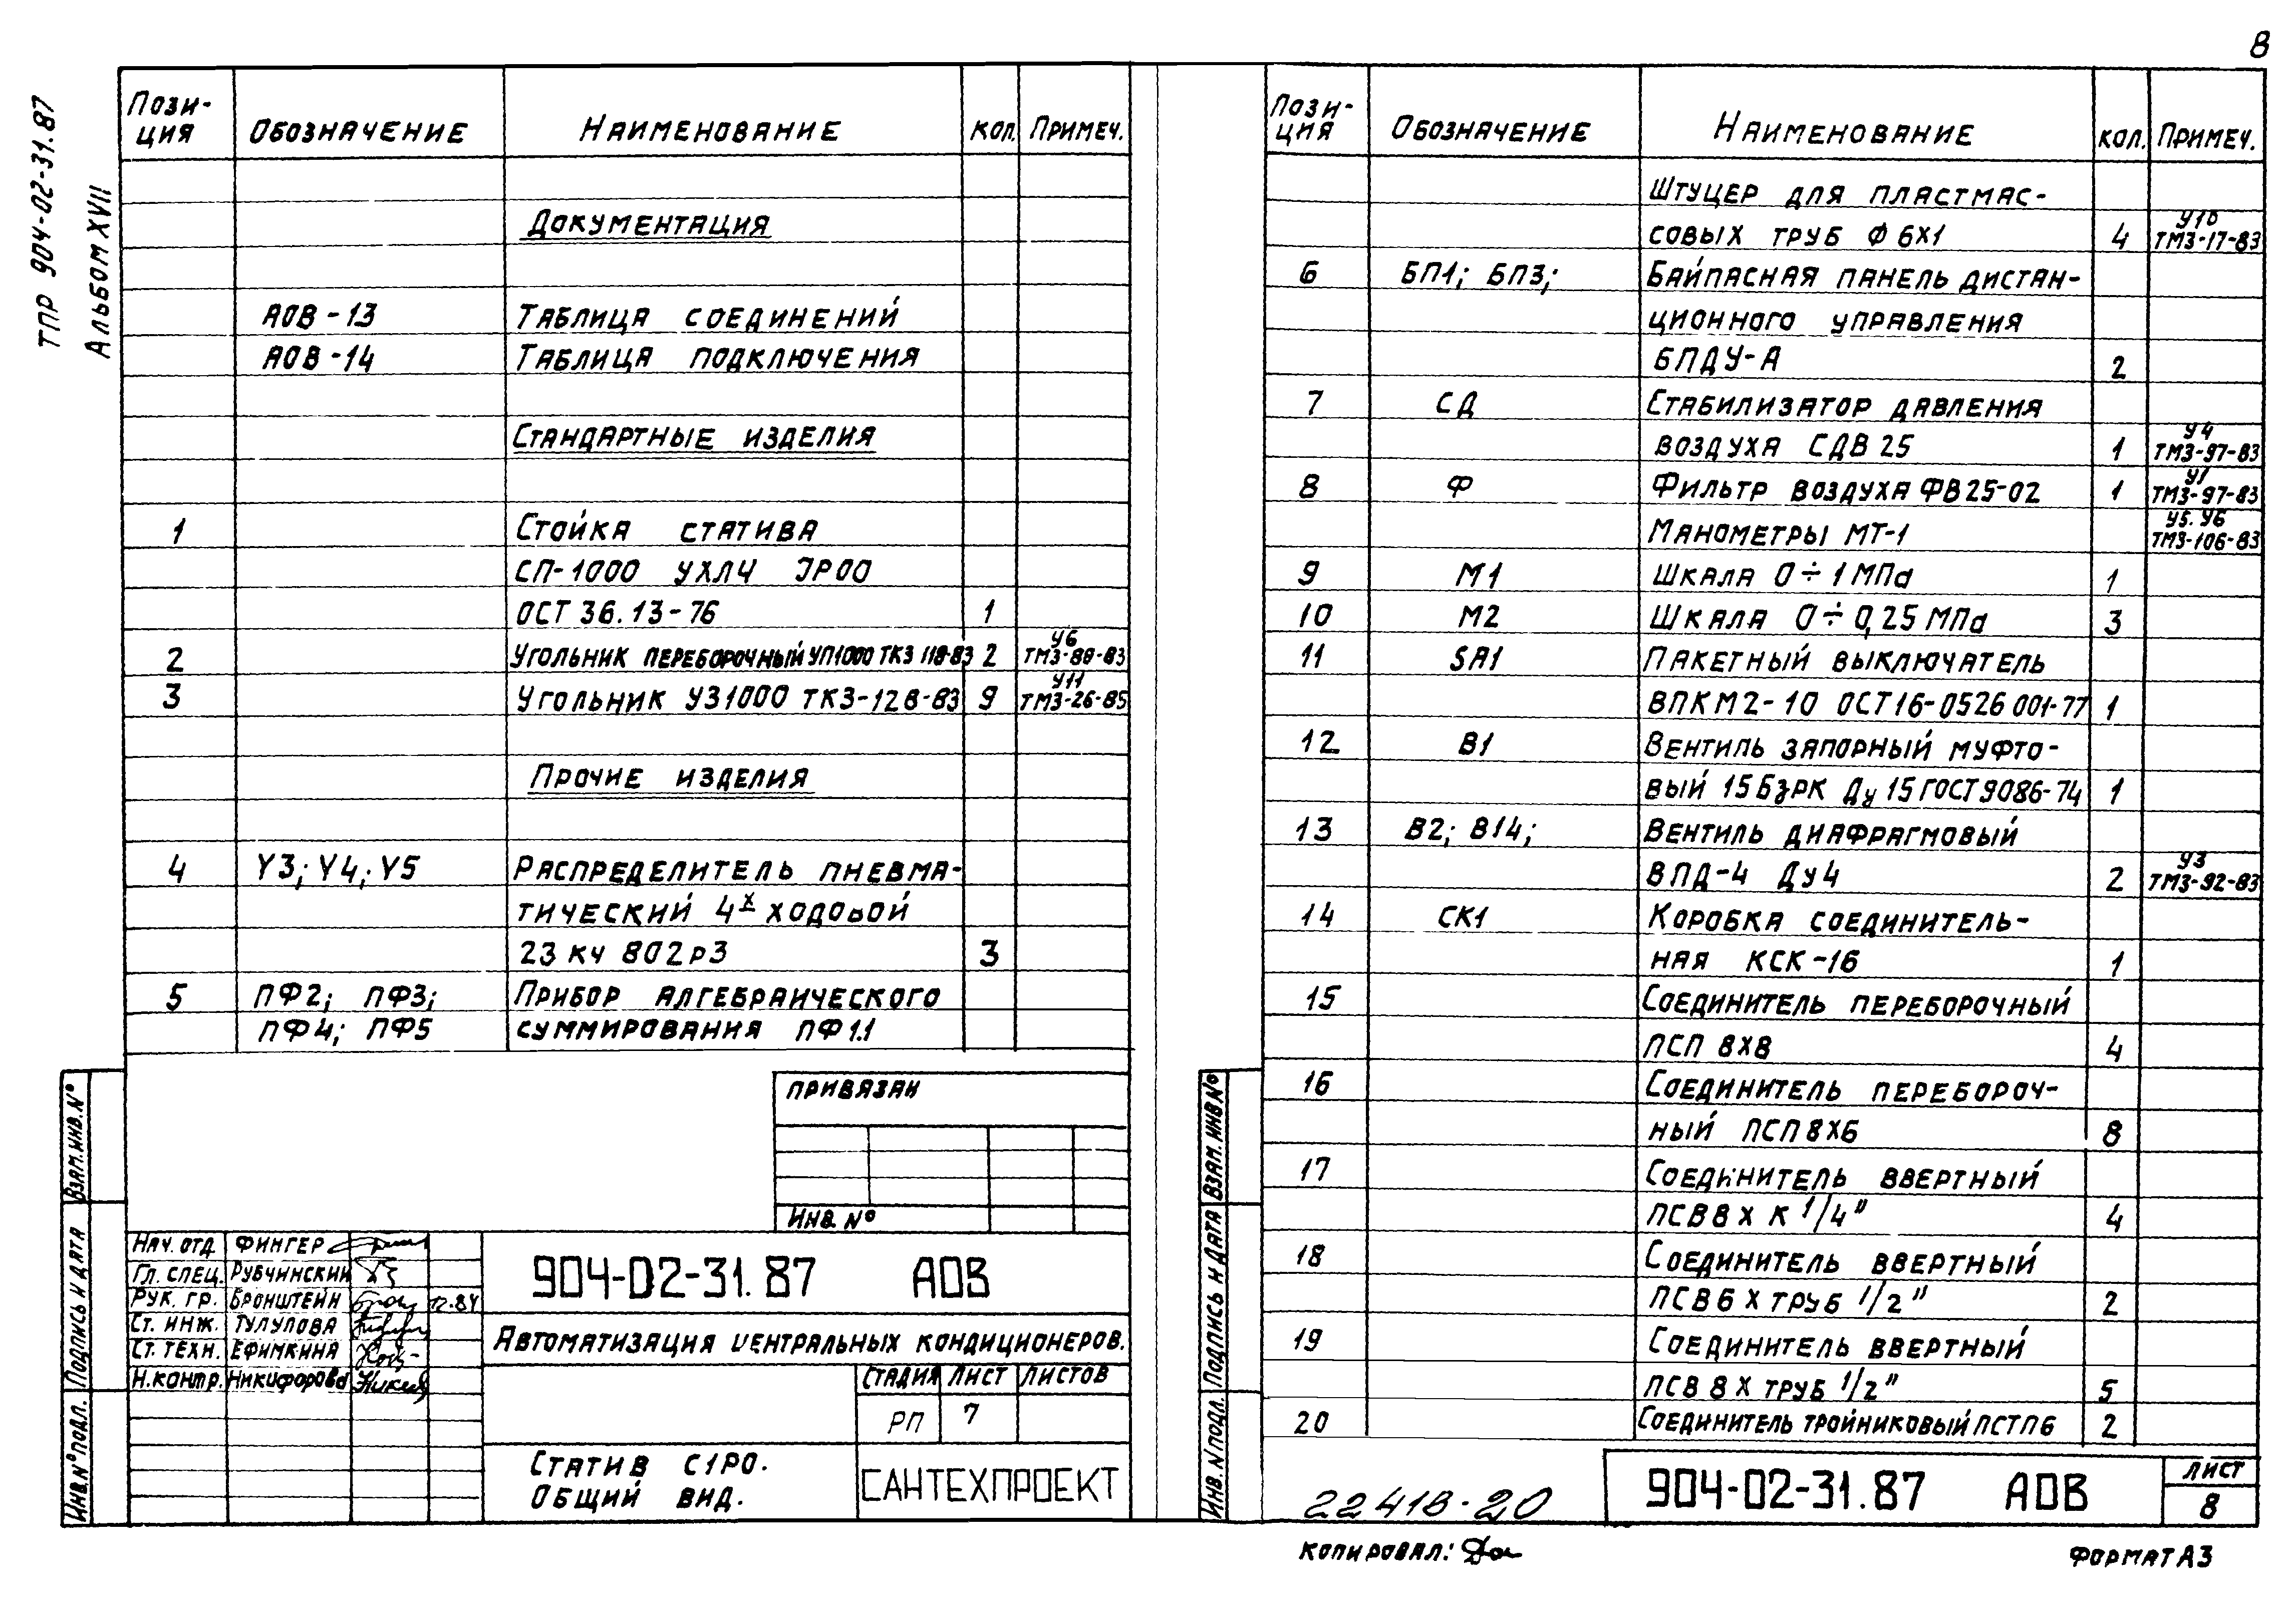 8
ТПР 904-02-31.87
Альбом XVII
Пози-
ция Обозначение Наименование Кол. Примеч.
Документация
АОВ-13 Таблица соединений
АОВ-14 Таблица подключения
Стандартные изделия
1 Стойка статива
СП-1000 УХЛ4 JP00
ОСТ 36.13-76 1
2 Угольник переборочный УП1000 ТК3 118-83 2 У6 ТМ3-88-83
3 Угольник УЗ1000 ТК3-128-83 9 У11 ТМ3-26-85
Прочие изделия
4 Y3; Y4; Y5 Распределитель пневма-
тический 4х ходовой
23 кч 802р3 3
5 ПФ2; ПФ3; Прибор алгебраического
ПФ4; ПФ5 суммирования ПФ1.1
Привязан
Инв. №
Взам. инв. №
Подпись и дата
Инв. № подл.
Нач. отд. Фингер
Гл. спец. Рубчинский
Рук. гр. Бронштейн 12.84
Ст. инж. Тулупова
Ст. техн. Ефимкина
Н. контр. Никифорова
904-02-31.87 АОВ
Автоматизация центральных кондиционеров.
Стадия Лист Листов
РП 7
Статив С1РО.
Общий вид.
САНТЕХПРОЕКТ
Пози-
ция Обозначение Наименование Кол. Примеч.
Штуцер для пластмас-
совых труб Ф 6х1 4 У10 ТМ3-17-83
6 БП1; БП3; Байпасная панель дистан-
ционного управления
БПДУ-А 2
7 СД Стабилизатор давления
воздуха СДВ 25 1 У4 ТМ3-97-83
8 Ф Фильтр воздуха ФВ25-02 1 У1 ТМ3-97-83
Манометры МТ-1 У5. У6 ТМ3-106-83
9 М1 Шкала 0÷1 МПа 1
10 М2 Шкала 0÷0,25 МПа 3
11 SA1 Пакетный выключатель
ВПКМ2-10 ОСТ16-0526 001-77 1
12 В1 Вентиль запорный муфто-
вый 15БзрК Ду 15 ГОСТ 9086-74 1
13 В2; В14; Вентиль диафрагмовый
ВПД-4 Ду4 2 У3 ТМ3-92-83
14 СК1 Коробка соединитель-
ная КСК-16 1
15 Соединитель переборочный
ПСП 8х8 4
16 Соединитель перебороч-
ный ПСП 8х6 8
17 Соединитель ввертный
ПСВ8 х К 1/4" 4
18 Соединитель ввертный
ПСВ6 х труб 1/2" 2
19 Соединитель ввертный
ПСВ 8 х труб 1/2" 5
20 Соединитель тройниковый ПСТП6 2
Взам. инв. №
Подпись и дата
Инв. N подл.
904-02-31.87 АОВ
Лист
8
22418-20
Копировал:
Формат А3